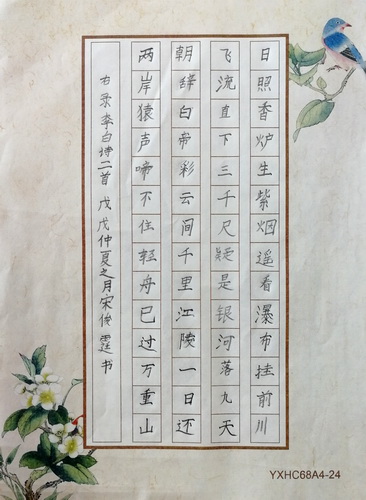 日照香炉生紫烟遥看瀑布挂前川
飞流直下三千尺疑是银河落九天
朝辞白帝彩云间千里江陵一日还
两岸猿声啼不住轻舟已过万重山
右录李白诗二首 戊戌仲夏之月宋俊霆书
YXHC68A4-24